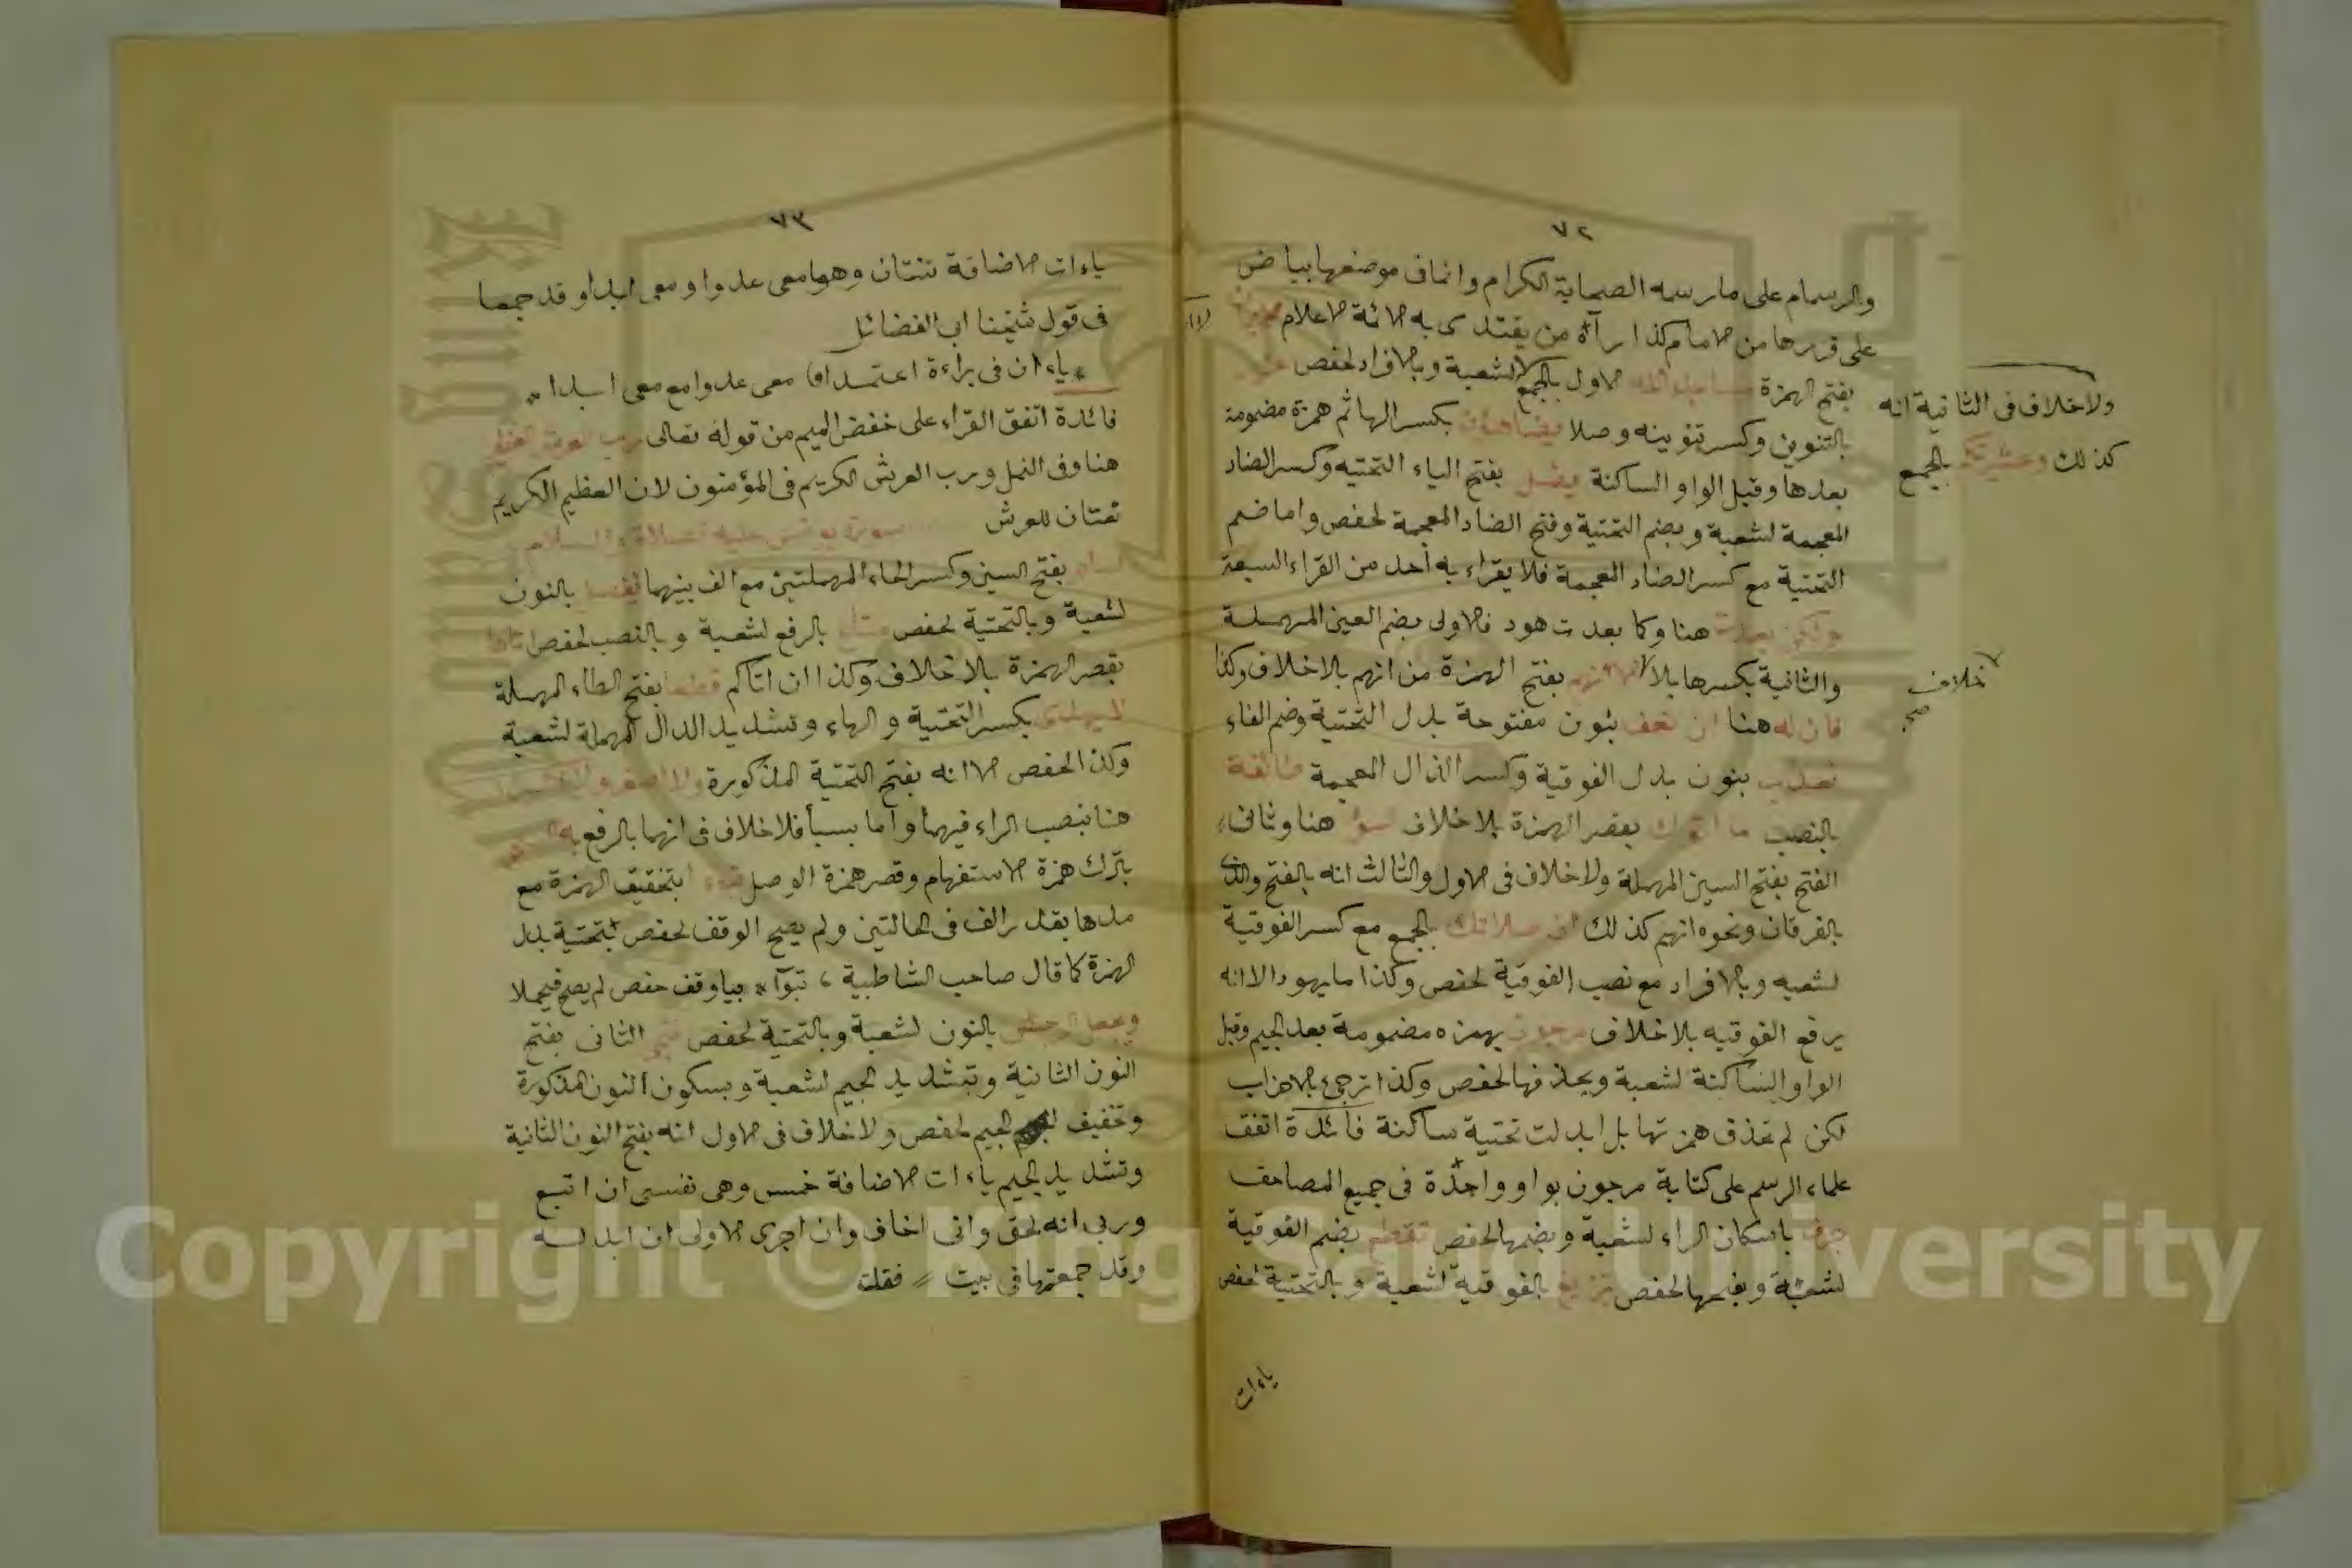 ٧٢
والرسام على ما رسمه الصحابة الكرام وانما فى موضعها بياض
على قررها من الامام كذا رآه من يقتدى به الائمة الاعلام
بفتح الهمزة مساجد الله الاول بالجمع لشعبة وبالافراد لحفص عزير
بالتنوين وكسر تنوينه وصلا يضاهئون بكسر الها ثم همزة مضمومة
بعدها وقبل الواو الساكنة يضل بفتح الياء التحتيه وكسر الضاد
المعجمة لشعبة وبضم التحتية وفتح الضاد المعجمة لحفص واما ضم
التحتية مع كسر الضاد المعجمة فلا يقراء به أحد من القراء السبعة
ولكن بعدت هنا وكما بعدت هود فالاولى بضم العين المهملة
والثانية بكسرها بلا الا انهم بفتح الهمزة من انهم بلا خلاف وكذا
فان له هنا ان نعف بنون مفتوحة بدل التحتية وضم الفاء
نعذب بنون بدل الفوقية وكسر الذال المعجمة طائفة
بالنصب ما اتوك بقصر الهمزة بلا خلاف السوء هنا وثانى
الفتح بفتح السين المهملة ولا خلاف فى الاول والثالث انه بالفتح والذى
بالفرقان ونحوه انهم كذلك ان صلاتك بالجمع مع كسر الفوقية
لشعبه وبالافراد مع نصب الفوقية لحفص وكذا ما بهود الا انه
برفع الفوقيه بلا خلاف مرجون بهمزه مضمومة بعد الجيم وقبل
الواو الساكنة لشعبة وبحذفها لحفص وكذا ترجئ بالاحزاب
لكن لم تحذف همزتها بل ابدلت تحتية ساكنة فائدة اتفق
علماء الرسم على كتابة مرجون بواو واحدة فى جميع المصاحف
جرف باسكان الراء لشعبة وبضمها لحفص تقطع بضم الفوقية
لشعبة وبفتحها لحفص تزيغ بالفوقية لشعبة وبالتحتية لحفص
ياءات
ولا خلاف فى الثانية انه
كذلك وعشيرتكم بالجمع
خلاف
صح
٧٣
ياءات الاضافة ثنتان وهما معى عدوا ومعى ابدا وقد جمعا
فى قول شيخنا ابى الفضائل
ياءان فى براءة اعتمدا معى عدوا مع معى ابدا
فائدة اتفق القراء على خفض الميم من قوله تعالى رب العرش العظيم
هنا وفى النمل ورب العرش الكريم فى المؤمنون لان العظيم الكريم
نعتان للعرش سورة يونس عليه الصلاة والسلام
بفتح السين وكسر الحاء المهملتين مع الف بينهما نفصل بالنون
لشعبة وبالتحتية لحفص متاع بالرفع لشعبة وبالنصب لحفص اتاها
بقصر الهمزة بلا خلاف وكذا ان اتاكم قطعا بفتح الطاء المهملة
لا يهدى بكسر التحتية والهاء وتشديد الدال المهملة لشعبة
وكذا لحفص الا انه بفتح التحتية المذكورة ولا اصغر ولا اكبر
هنا بنصب الراء فيهما واما بسبأ فلا خلاف فى انهما بالرفع به السحر
بترك همزة الاستفهام وقصر همزة الوصل تبوءا بتحقيق الهمزة مع
مدها بقدر الف فى الحالتين ولم يصح الوقف لحفص بتحتية بدل
الهمزة كما قال صاحب الشاطبية ، تبوآ * بيا وقف حفص لم يصح فيحملا
ويجعل الرجس بالنون لشعبة وبالتحتية لحفص ننج الثانى بفتح
النون الثانية وتشديد الجيم لشعبة وبسكون النون المذكورة
وتخفيف الجيم لحفص ولا خلاف فى الاول انه بفتح النون الثانية
وتشديد الجيم ياءات الاضافة خمس وهى نفسى ان اتبع
وربى انه لحق وانى اخاف وان اجرى الاولى ان ابدله
وقد جمعتها فى بيت فقلت
Copyright © King Saud University